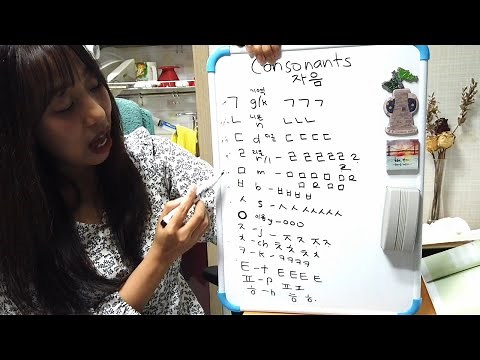 Consonants
자음
ㄱ 기역 g/k ㄱㄱㄱ
ㄴ 니은 n ㄴㄴㄴ
ㄷ d ㄷㄷㄷㄷ
ㄹ 리을 r/l - ㄹㄹㄹㄹㄹㄹ
ㅁ m - ㅁㅁㅁㅁㅁ
ㅁㅁㅁㅁ
ㅂ b - ㅂㅂㅂㅂ
ㅅ s - ㅅㅅㅅㅅㅅㅅ
ㅇ 이응 - ㅇㅇㅇ
ㅈ - j - ㅈㅈㅈㅈ
ㅊ - ch ㅊㅊㅊㅊ
ㅋ - k - ㅋㅋㅋㅋ
ㅌ - t ㅌㅌㅌㅌ
ㅍ - p ㅍㅍ
ㅎ - h ㅎㅎ.